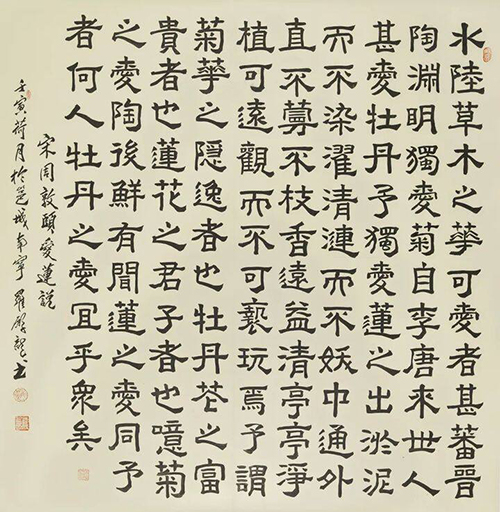 水陸草木之華可愛者甚蕃晉
陶淵明獨愛菊自李唐來世人
甚愛牡丹予獨愛蓮之出淤泥
而不染濯清漣而不妖中通外
直不蔓不枝香遠益清亭亭淨
植可遠觀而不可褻玩焉予謂
菊華之隱逸者也牡丹花之富
貴者也蓮花之君子者也噫菊
之愛陶後鮮有聞蓮之愛同予
者何人牡丹之愛宜乎衆矣
宋周敦頤愛蓮說
壬寅荷月於邕城南寧羅書